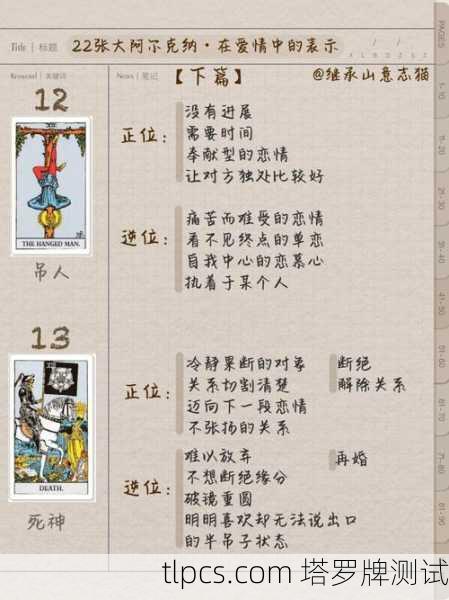 Title | 标题 22张大阿尔克纳·在爱情中的表示
Keyword | 关键词 News | 笔记 【下篇】 @继承山意志猫
PAGES
12
正位：
没有进展
需要时间
奉献型的恋情
让对方独处比较好
THE HANGED MAN.
吊人
逆位：
痛苦而难受的恋情
看不见终点的单恋
自我中心的恋慕心
执着于某个人
13
正位：
冷静果断的对象
关系切割清楚
迈向下一段恋情
不张扬的关系
断绝
解除关系
DEATH.
死神
逆位：
难以放弃
不想断绝缘分
破镜重圆
明明喜欢却无法说出口
的半吊子状态
再婚
1-10
11-20
21-30
31-40
41-50
51-60
61-70
71-80
81-90
tlpcs.com 塔罗牌测试